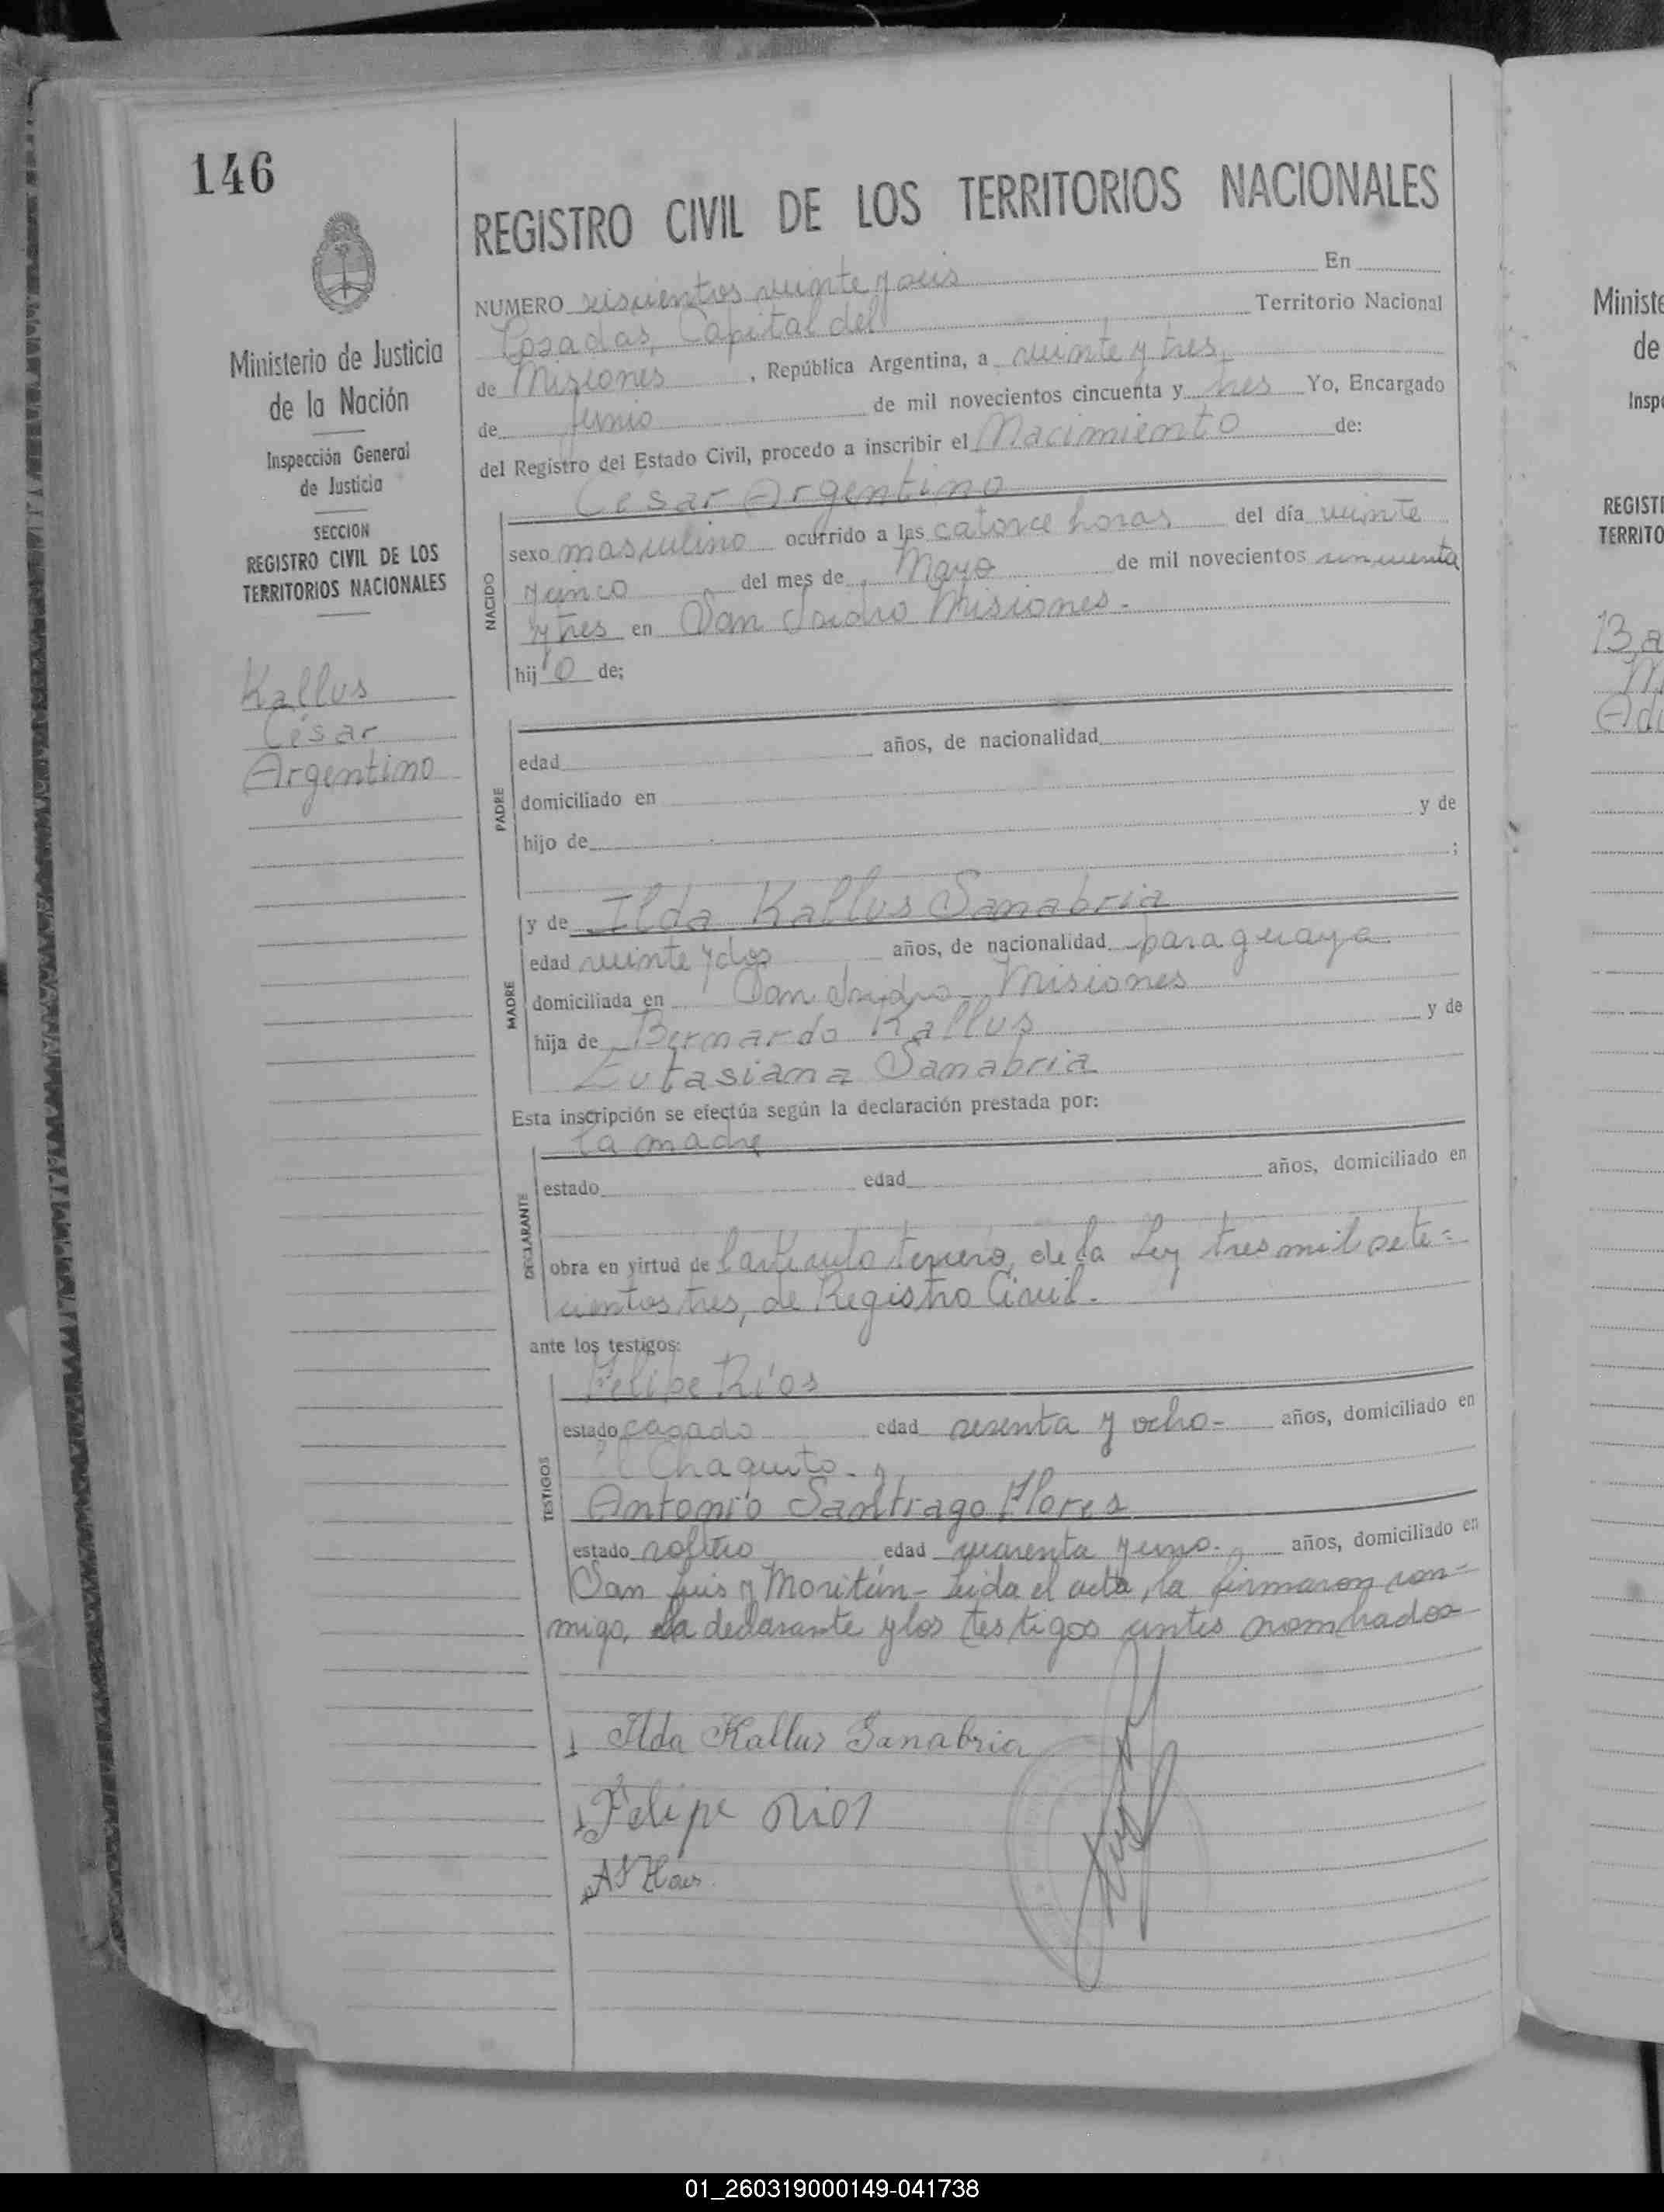 146
Ministerio de Justicia
de la Nación
Inspección General
de Justicia
SECCION
REGISTRO CIVIL DE LOS
TERRITORIOS NACIONALES
Kallus
César
Argentino
REGISTRO CIVIL DE LOS TERRITORIOS NACIONALES
NUMERO seiscientos veinte y seis En
Posadas, Capital del Territorio Nacional
de Misiones, República Argentina, a veinte y tres
de Junio de mil novecientos cincuenta y tres Yo, Encargado
del Registro del Estado Civil, procedo a inscribir el Nacimiento de:
César Argentino
NACIDO
sexo masculino ocurrido a las catorce horas del día veinte
y cinco del mes de Mayo de mil novecientos cincuenta
y tres en San Isidro Misiones.-
hijo de;
PADRE
edad años, de nacionalidad
domiciliado en
hijo de y de
;
MADRE
y de Ilda Kallus Sanabria
edad veinte y dos años, de nacionalidad paraguaya
domiciliada en San Isidro - Misiones
hija de Bernardo Kallus y de
Eutasiana Sanabria
Esta inscripción se efectúa según la declaración prestada por:
La madre
DECLARANTE
estado edad años, domiciliado en
obra en virtud de l artículo tercero, de la Ley tres mil sete=
cientos tres, de Registro Civil.-
ante los testigos:
TESTIGOS
Felipe Ríos
estado casado edad sesenta y ocho- años, domiciliado en
El Chaquito - y
Antonio Santiago Flores
estado soltero edad cuarenta y uno- años, domiciliado en
San Luis y Moritán - Leida el acta, la firmaron con=
migo, la declarante y los testigos antes nombrados
Ilda Kallus Sanabria
Felipe Rios
Ministe
de
Inspe
REGISTR
TERRITO
01_260319000149-041738